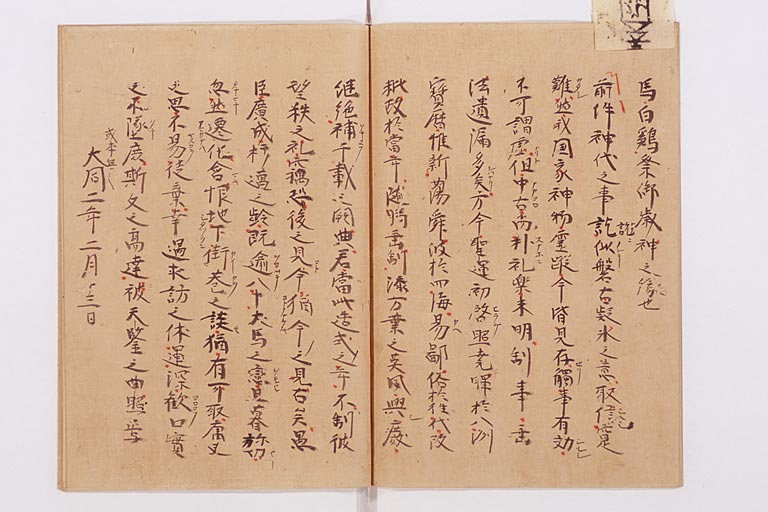 馬白鷄祭御歳神之縁也
前件神代之事説似盤古疑氷之意取信寔
難雖然我国家神物霊蹤今皆見存觸事有効
不可謂虚但中古尚朴礼楽未明制事垂
法遺漏多矣方今聖運初啓照尭暉於八洲
寶暦惟新蕩舜波於四海易鄙俗於往代改
秕政於當年随時垂制流万葉之英風興廢
継絶補千載之闕典若當此造式之年不制彼
望秩之礼竊恐後之見今猶今之見古矣愚
臣廣成朽邁之齢既逾八十犬馬之戀旦暮弥切
忽然遷化含恨地下街巷之談猶有可取庸夫
之思不易徒棄幸遇求訪之休運深歓口實
之不墜庶斯文之高達被天鑒之曲照焉
大同二年二月十三日